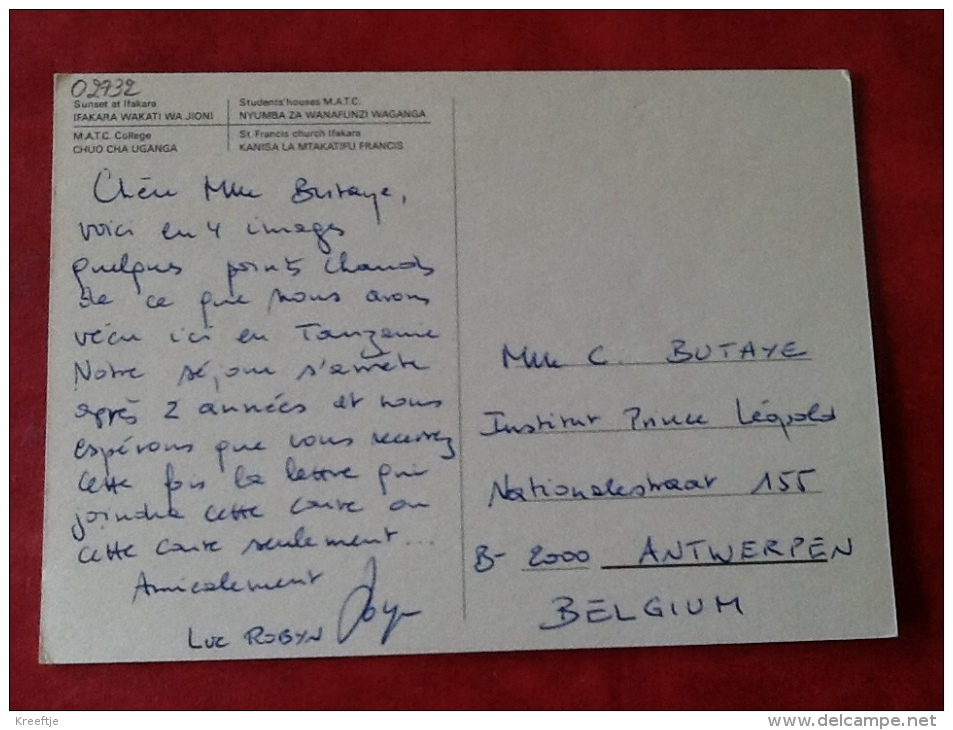 02732
Sunset at Ifakara
IFAKARA WAKATI WA JIONI
Students' houses M.A.T.C.
NYUMBA ZA WANAFUNZI WAGANGA
M.A.T.C. College
CHUO CHA UGANGA
St. Francis church Ifakara
KANISA LA MTAKATIFU FRANCIS
Chère Mme Butaye,
voici en 4 images
quelques points chauds
de ce que nous avons
vécu ici en Tanzanie
Notre séjour s'arrête
après 2 années et nous
espérons que vous recevrez
cette fois la lettre qui
joindra cette carte ou
cette carte seulement...
Amicalement
Luc ROBYN
Mme C. BUTAYE
Institut Prince Léopold
Nationalestraat 155
B- 2000 ANTWERPEN
BELGIUM
Kreeftje
www.delcampe.net